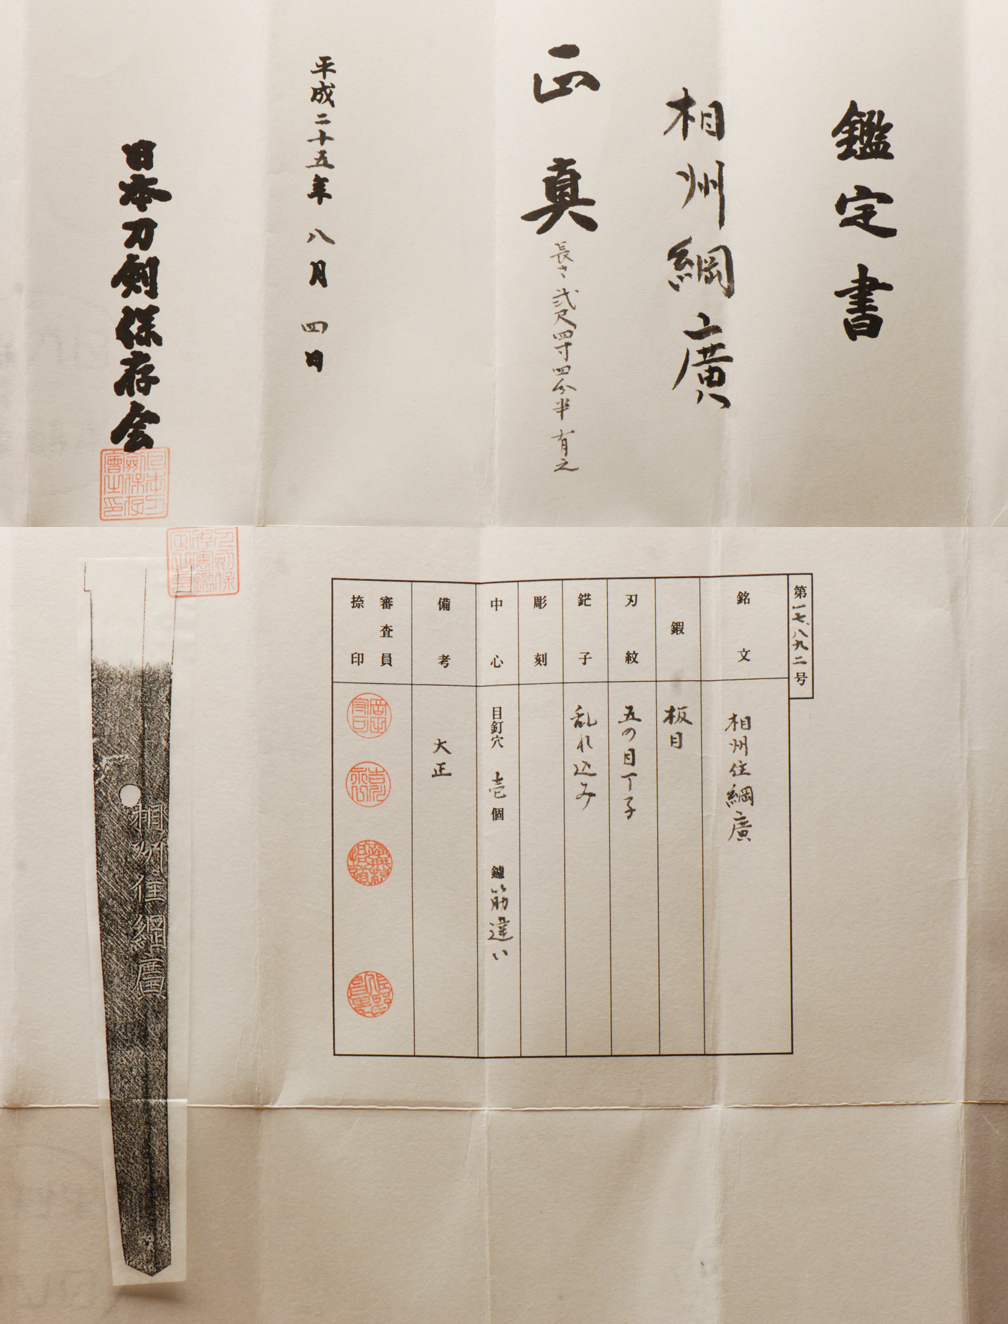 鑑定書
相州綱廣
正真
長さ弐尺四寸四分半有之
平成二十五年八月四日
日本刀剣保存会
第一七八九二号
銘文
相州住綱廣
鍜
板目
刃紋
五の目丁子
鋩子
乱れ込み
彫刻
中心
目釘穴 壱個 鑢 筋違い
備考
大正
審査員
捺印
相州住綱廣